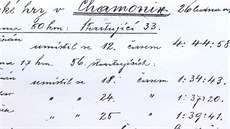 ké hry v Chamonix 26. ledna a
na 50 km: Startující 33.
umístil se 12. časem 4:44:58
ma 17 km. 56. startujících.
umístil se 18. časem 1:34:43.
" " 24. " 1:37:20.
" " 25 " 1:39:41.